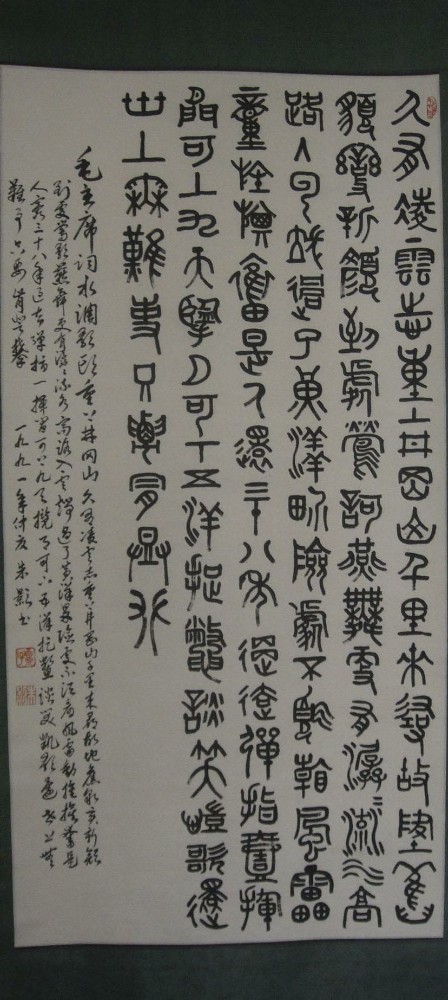 久有凌雲志重上井岡山千里来尋故地舊
貌變新顏到處鶯歌燕舞更有潺〻流水高
路入雲端過了黃洋界險處不須看風雷
動旌旗奮是人寰三十八年過去彈指一揮
間可上九天攬月可下五洋捉鱉談笑凱歌還
世上無難事只要肯登攀
毛主席词水调歌头重上井冈山久有凌云志重上井冈山千里来寻故地旧貌变新颜
到处莺歌燕舞更有潺〻流水高路入云端过了黄洋界险处不须看风雷动旌旗奋是
人寰三十八年过去弹指一挥间可上九天揽月可下五洋捉鳖谈笑凯歌还世上无
难事只要肯登攀 一九九一年仲夏 朱影书